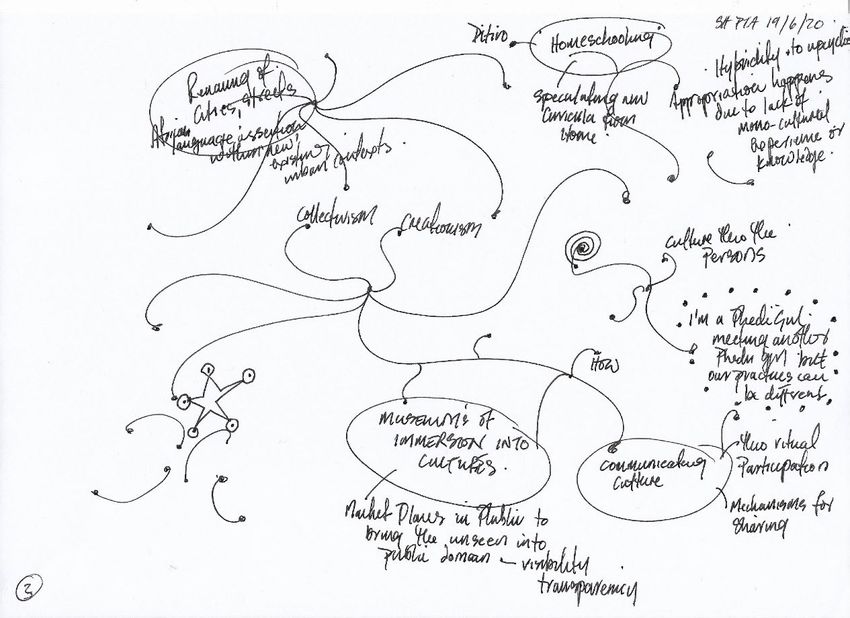 SHAPTA 19/6/20
Renaming of
Cities, streets
African
language assertion
within new,
existing
urban contexts.
Ditiro
Homeschooling
Speculating new
Curricula from
home.
Hybridity to upcycle
Appropriation happens
due to lack of
mono-cultural
Experience or
Knowledge.
Collectivism
Creationism
Culture thro the
Persons
I'm a Phedi Girl
meeting another
Phedi girl but
our practices can
be different.
How
MUSEUMS OF
IMMERSION INTO
CULTURES.
Communicating
Culture
thro ritual
Participation
Mechanisms for
Sharing
Market Places in Public to
bring the unseen into
public domain — visibility
transparency
3